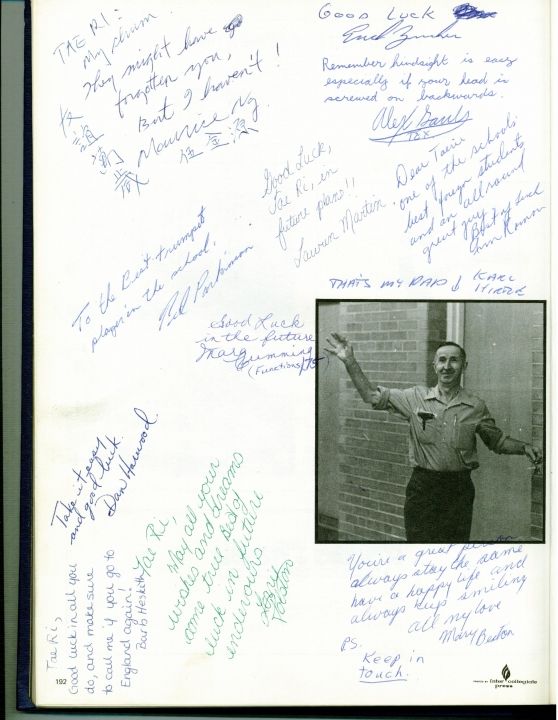 TAE RI:
My chum.
They might have
forgotten you,
But I haven't!
Maurice Ng.
伍金源
友誼
滿
GOOD LUCK
Remember hindsight is easy
especially if your head is
screwed on backwards.
Alex
Good Luck,
Tae Ri, in
future plans!!
Lauren Martin
Dear Taerie
one of the schools
best foreign students
and an allround
great guy
Best of Luck
To the Best trumpet
player in the school,
Ned Parkinson
THAT'S MY DAD ↓ KARL
Good Luck
in the future
Marg
Cumming
(Functions) 75
Take it easy
and good luck
Dan Harwood.
Tae Ri,
May all your
wishes and dreams
come true Best
luck in future
endeavours
Tae Ri,
Good luck in all you
do, and make sure
to call me if you go to
England again!
Barb Hesketh
You're a great person
always stay the same
have a happy life and
always keep smiling
all my love
Mary Beston
P.S.
Keep in
touch.
192
PRINTED BY inter collegiate
press